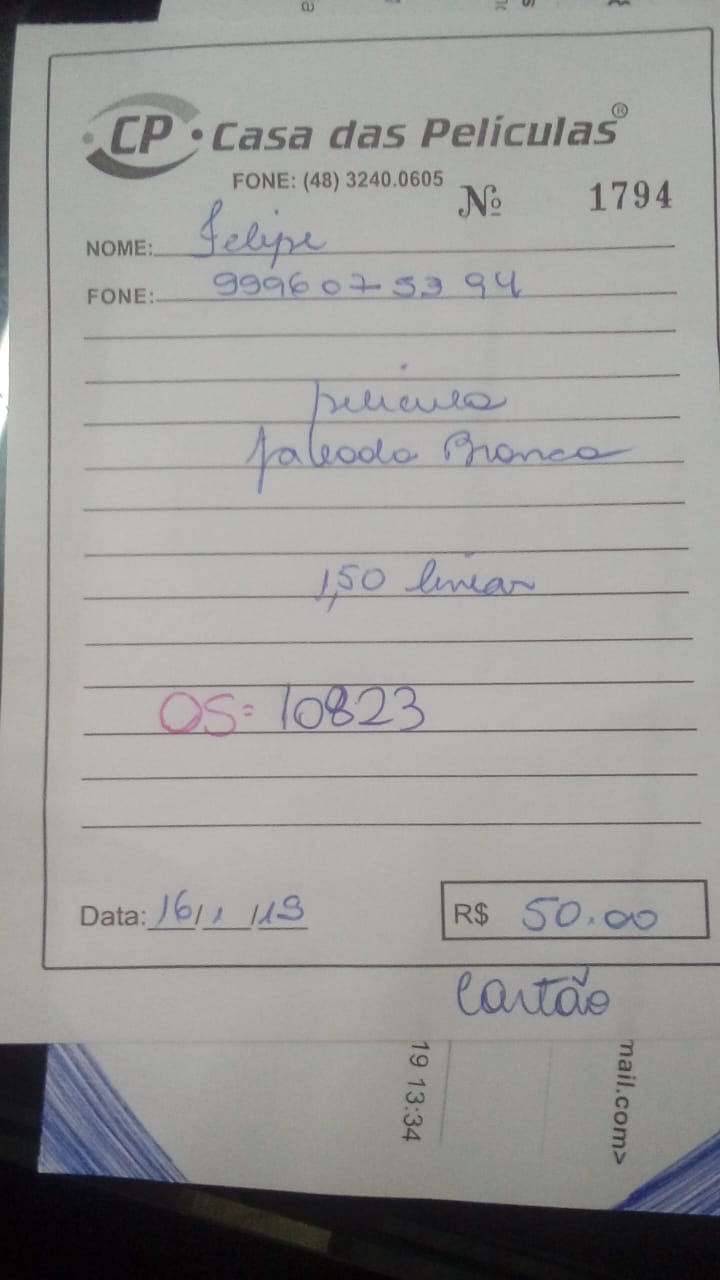 CP • Casa das Películas®
FONE: (48) 3240.0605
Nº 1794
NOME: Felipe
FONE: 99960753 94
película
Branca
1,50 linear
OS= 10823
Data: 16/1/19
R$ 50.00
cartão
19 13:34
mail.com>